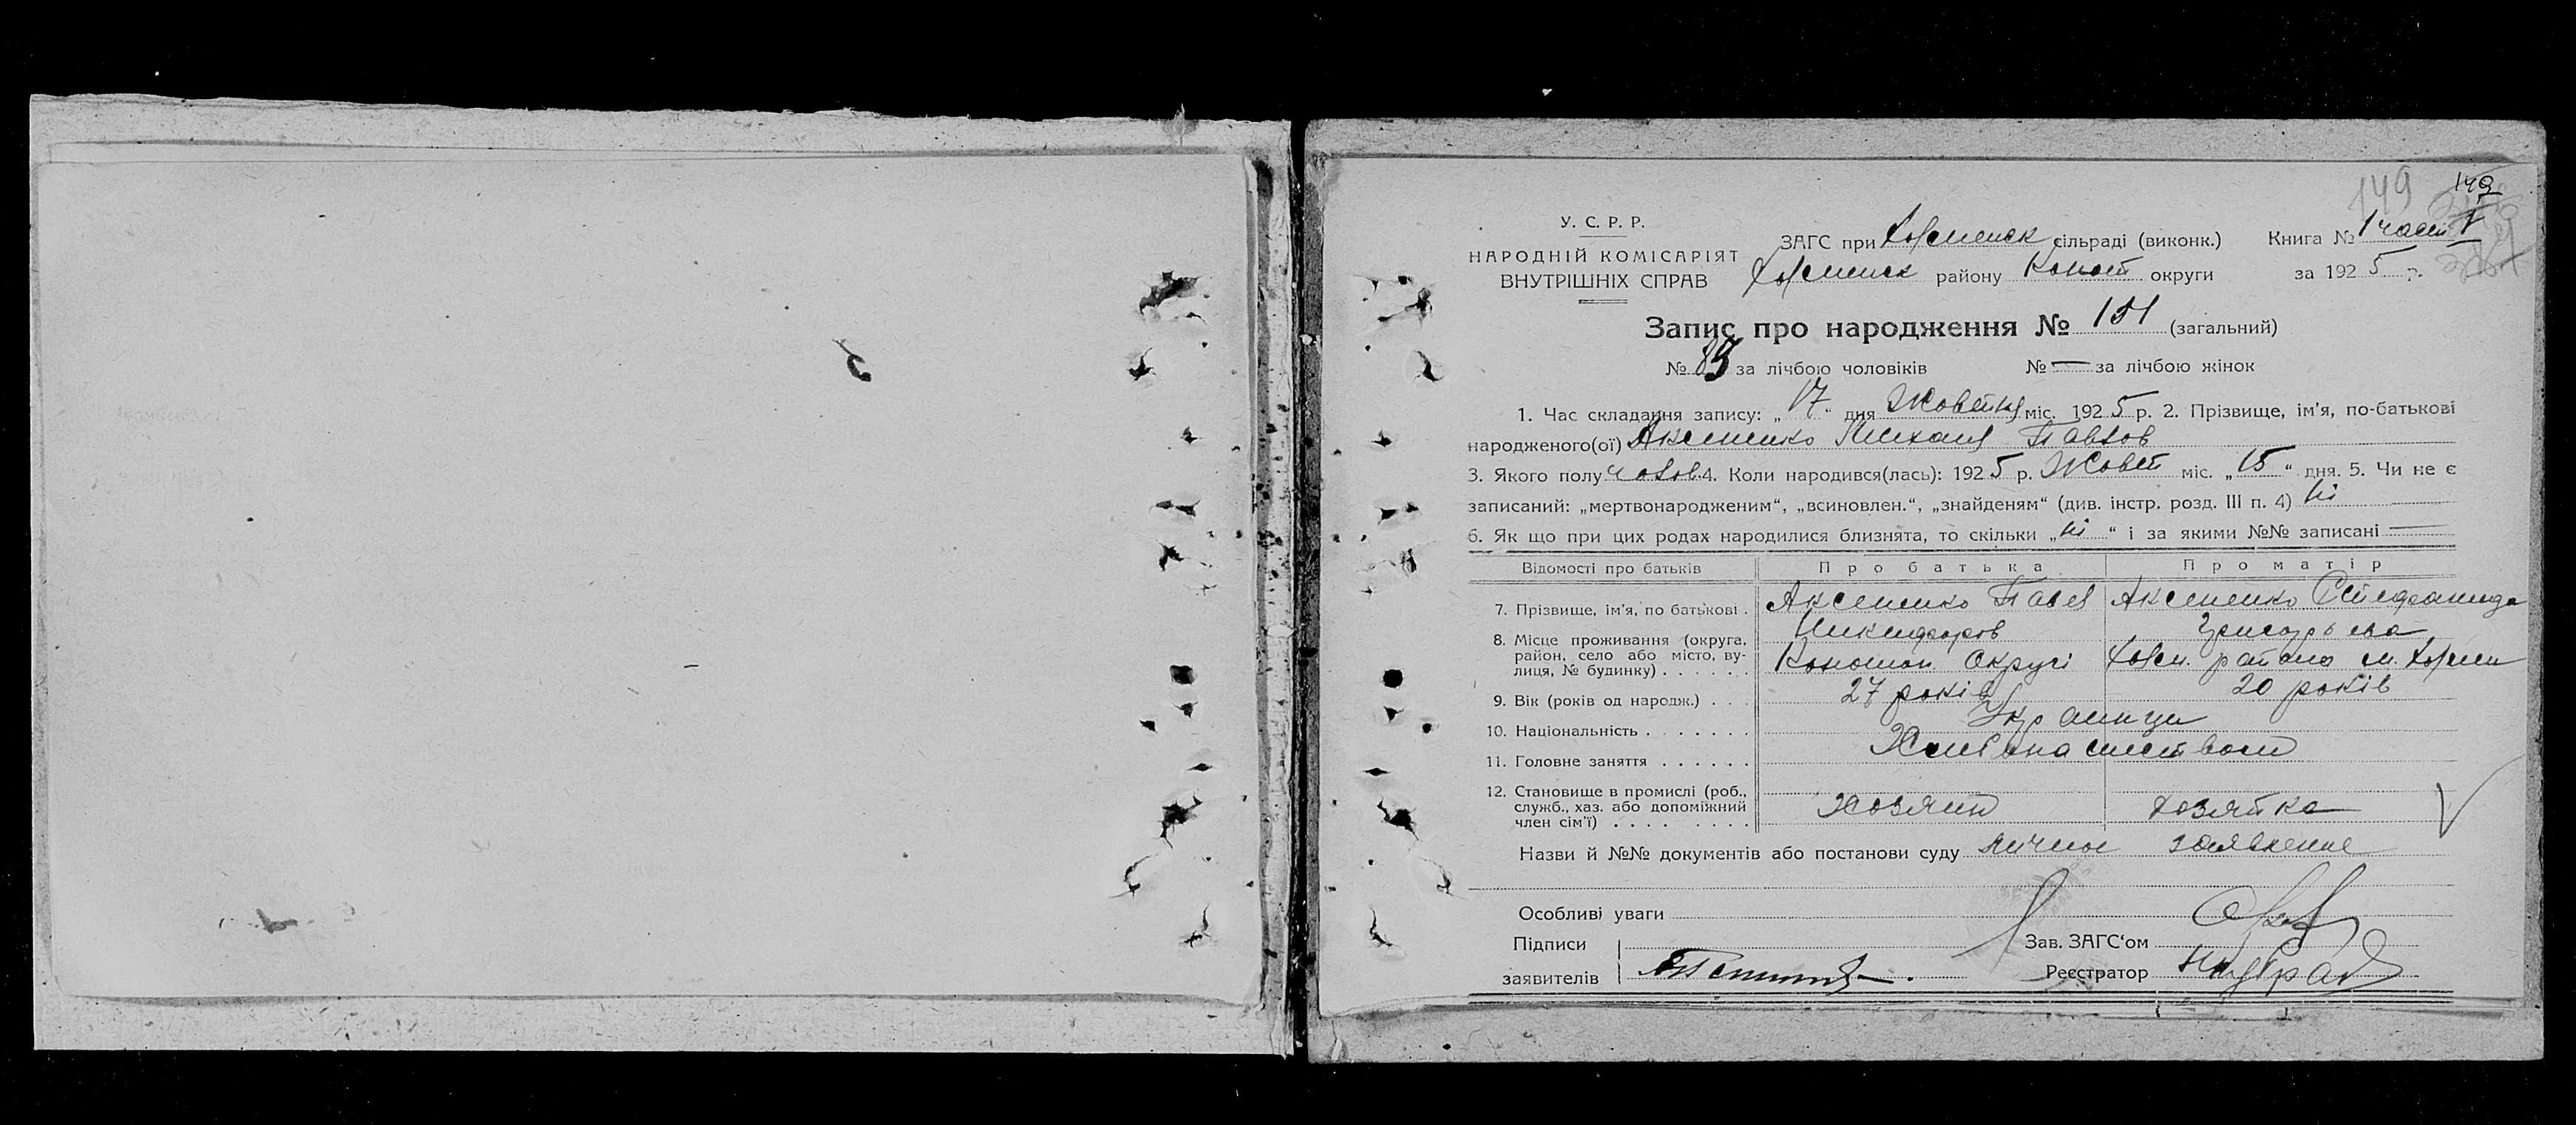 149 149
У. С. Р. Р.
НАРОДНІЙ КОМІСАРІЯТ
ВНУТРІШНІХ СПРАВ
ЗАГС при Холменск сільраді (виконк.) Книга № 1 част
Холменск району Коноп округи за 1925 р.
Запис про народження № 151 (загальний)
№ 89 за лічбою чоловіків № — за лічбою жінок
1. Час складання запису: „17“ дня Жовтня міс. 1925 р. 2. Прізвище, ім’я, по-батькові
народженого(ої) Аксененко Михаил Павлов
3. Якого полу чолов 4. Коли народився(лась): 1925 р. Жовт міс. „15“ дня. 5. Чи не є
записаний: „мертвонародженим“, „всиновлен.“, „знайденям“ (див. інстр. розд. III п. 4) ні
6. Як що при цих родах народилися близнята, то скільки „ні“ і за якими №№ записані —
Відомості про батьків Про батька Про матір
7. Прізвище, ім’я, по батькові . Аксененко Павел Аксененко Степанида
Никифоров Григорьева
8. Місце проживання (округа,
район, село або місто, ву-
лиця, № будинку) . . . . . . Конотоп. Округі Холм. района м. Холми
9. Вік (років од народж.) . . . 27 років 20 років
10. Національність . . . . . . . Украинци
11. Головне заняття . . . . . . Хліборобством
12. Становище в промислі (роб.,
служб., хаз. або допоміжний
член сім’ї) . . . . . . . . . Хозяин хозяйка
Назви й №№ документів або постанови суду личное заявление
Особливі уваги
Підписи
заявителів
Зав. ЗАГС‘ом
Реєстратор